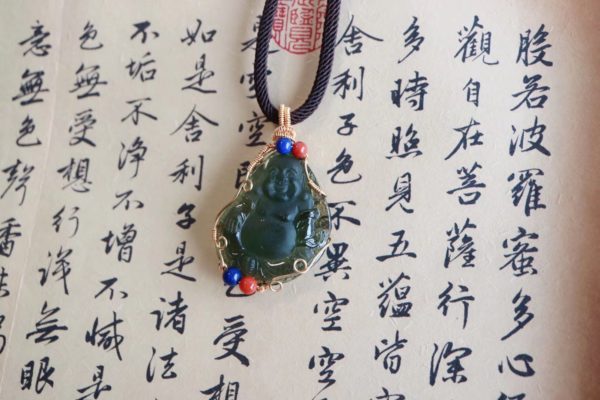 般若波羅蜜多心
觀自在菩薩行深
多時照見五蘊皆空
舍利子色不異空空
是空空即 受想
如是舍利子是諸法
不垢不淨不增不減是
色無受想行識無眼
意無色聲香味